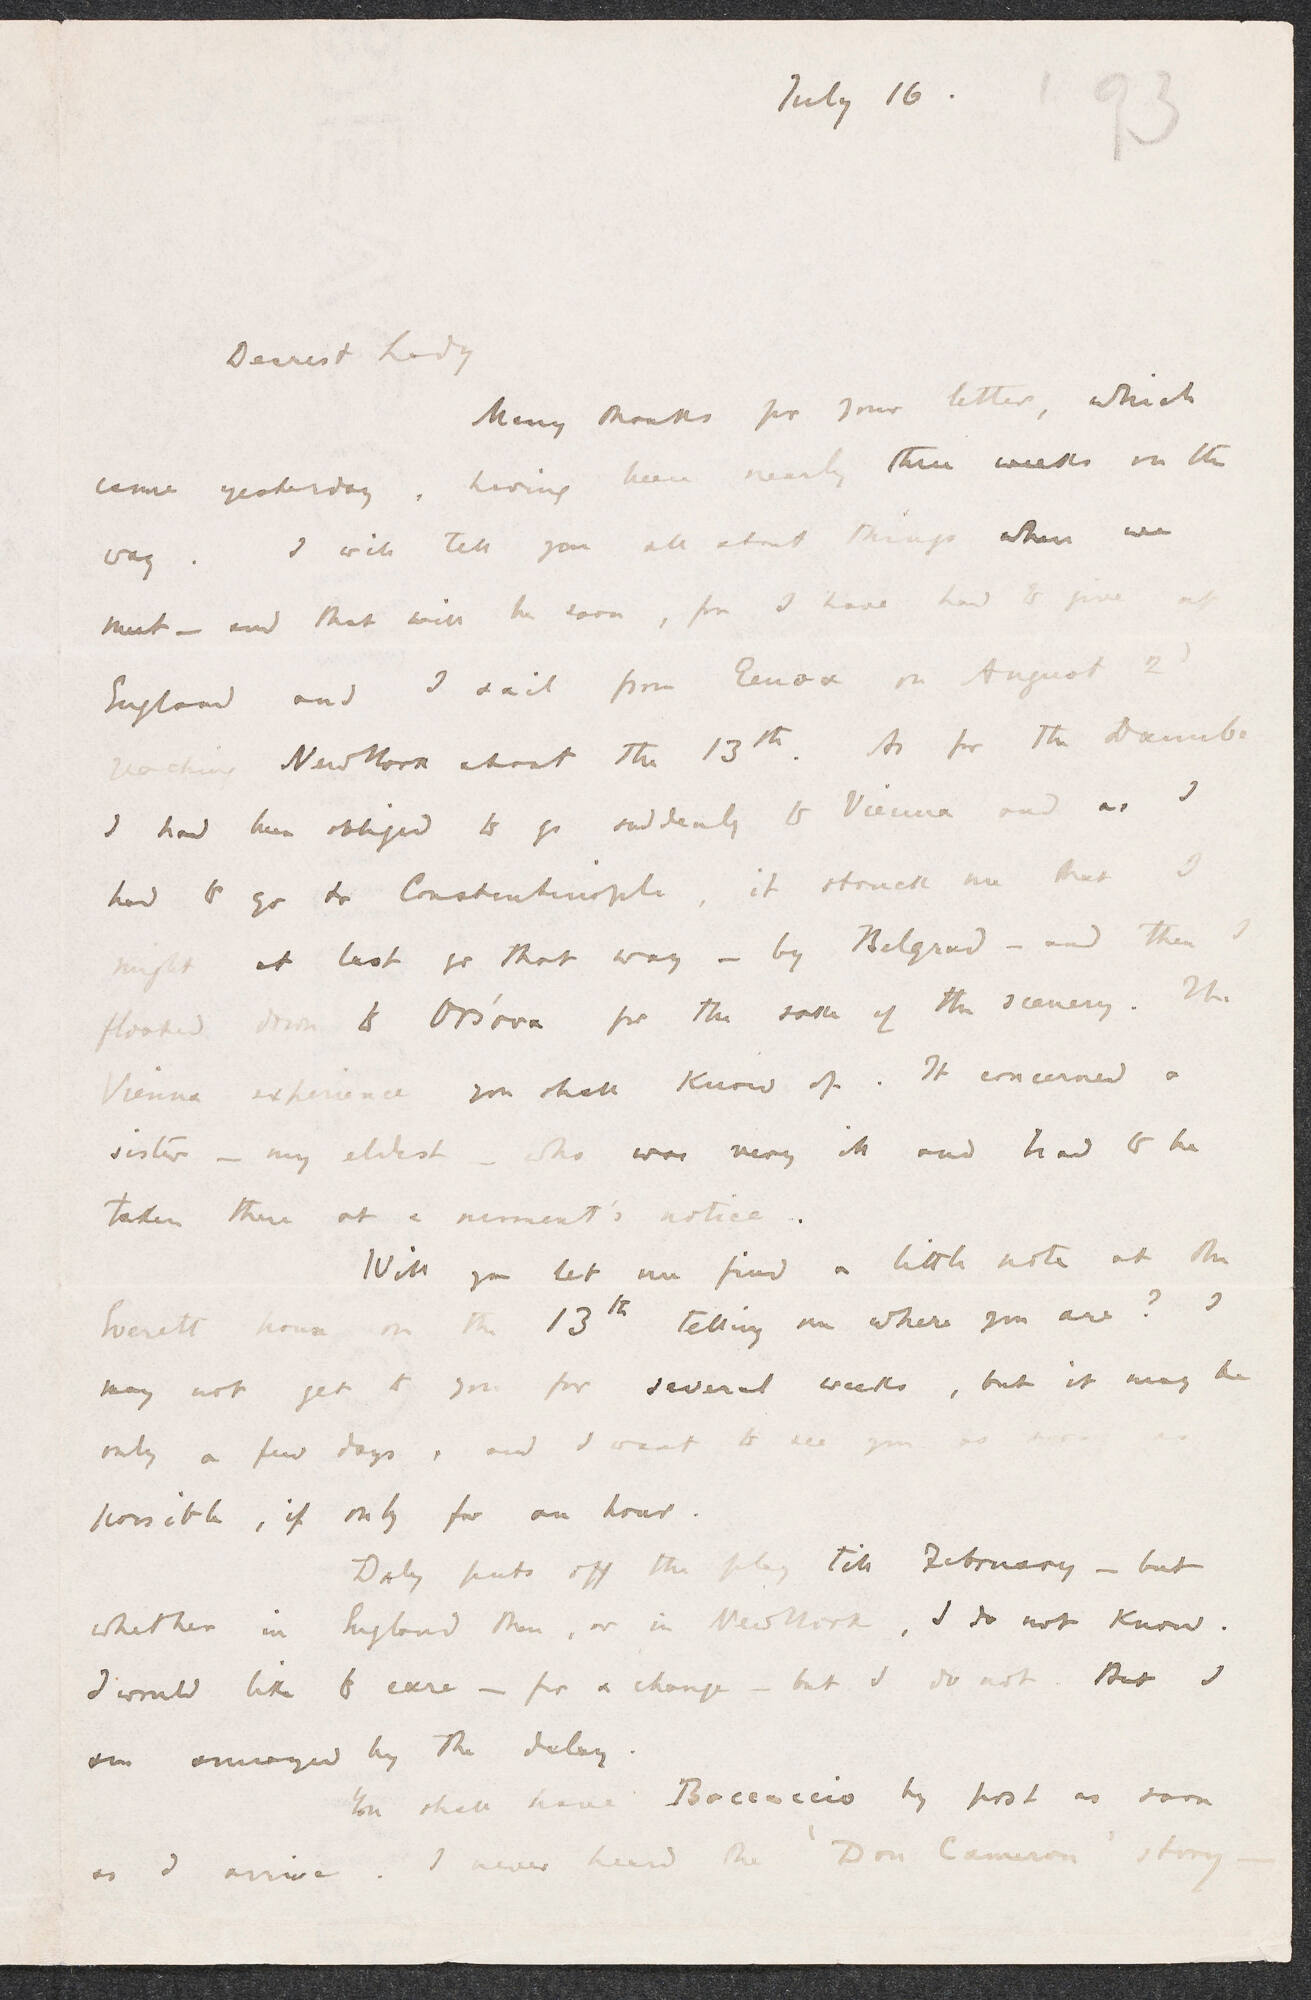 July 16. '93
Dearest Lady
Many thanks for your letter, which
came yesterday, having been nearly three weeks on the
way. I will tell you all about things when we
meet – and that will be soon, for I have had to give up
England and I sail from Genoa on August 2d
reaching New York about the 13th. As for the Danube
I had been obliged to go suddenly to Vienna and as I
had to go to Constantinople, it struck me that I
might at last go that way – by Belgrad – and then I
floated down to Orsova for the sake of the scenery. The
Vienna experience you shall know of. It concerned a
sister – my eldest – who was very ill and had to be
taken there at a moment's notice.
Will you let me find a little note at the
Everett house on the 13th telling me where you are? I
may not get to you for several weeks, but it may be
only a few days, and I want to see you as soon as
possible, if only for an hour.
Daly puts off the play till February – but
whether in England then, or in New York, I do not know.
I would like to care – for a change – but I do not. But I
am annoyed by the delay.
You shall have Boccaccio by post as soon
as I arrive. I never heard the 'Don Cameron' story –